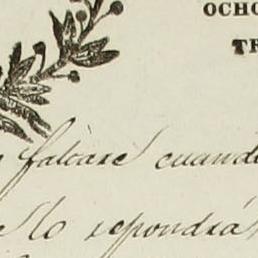 OCHO
TR
faltare cuando
No repondrá